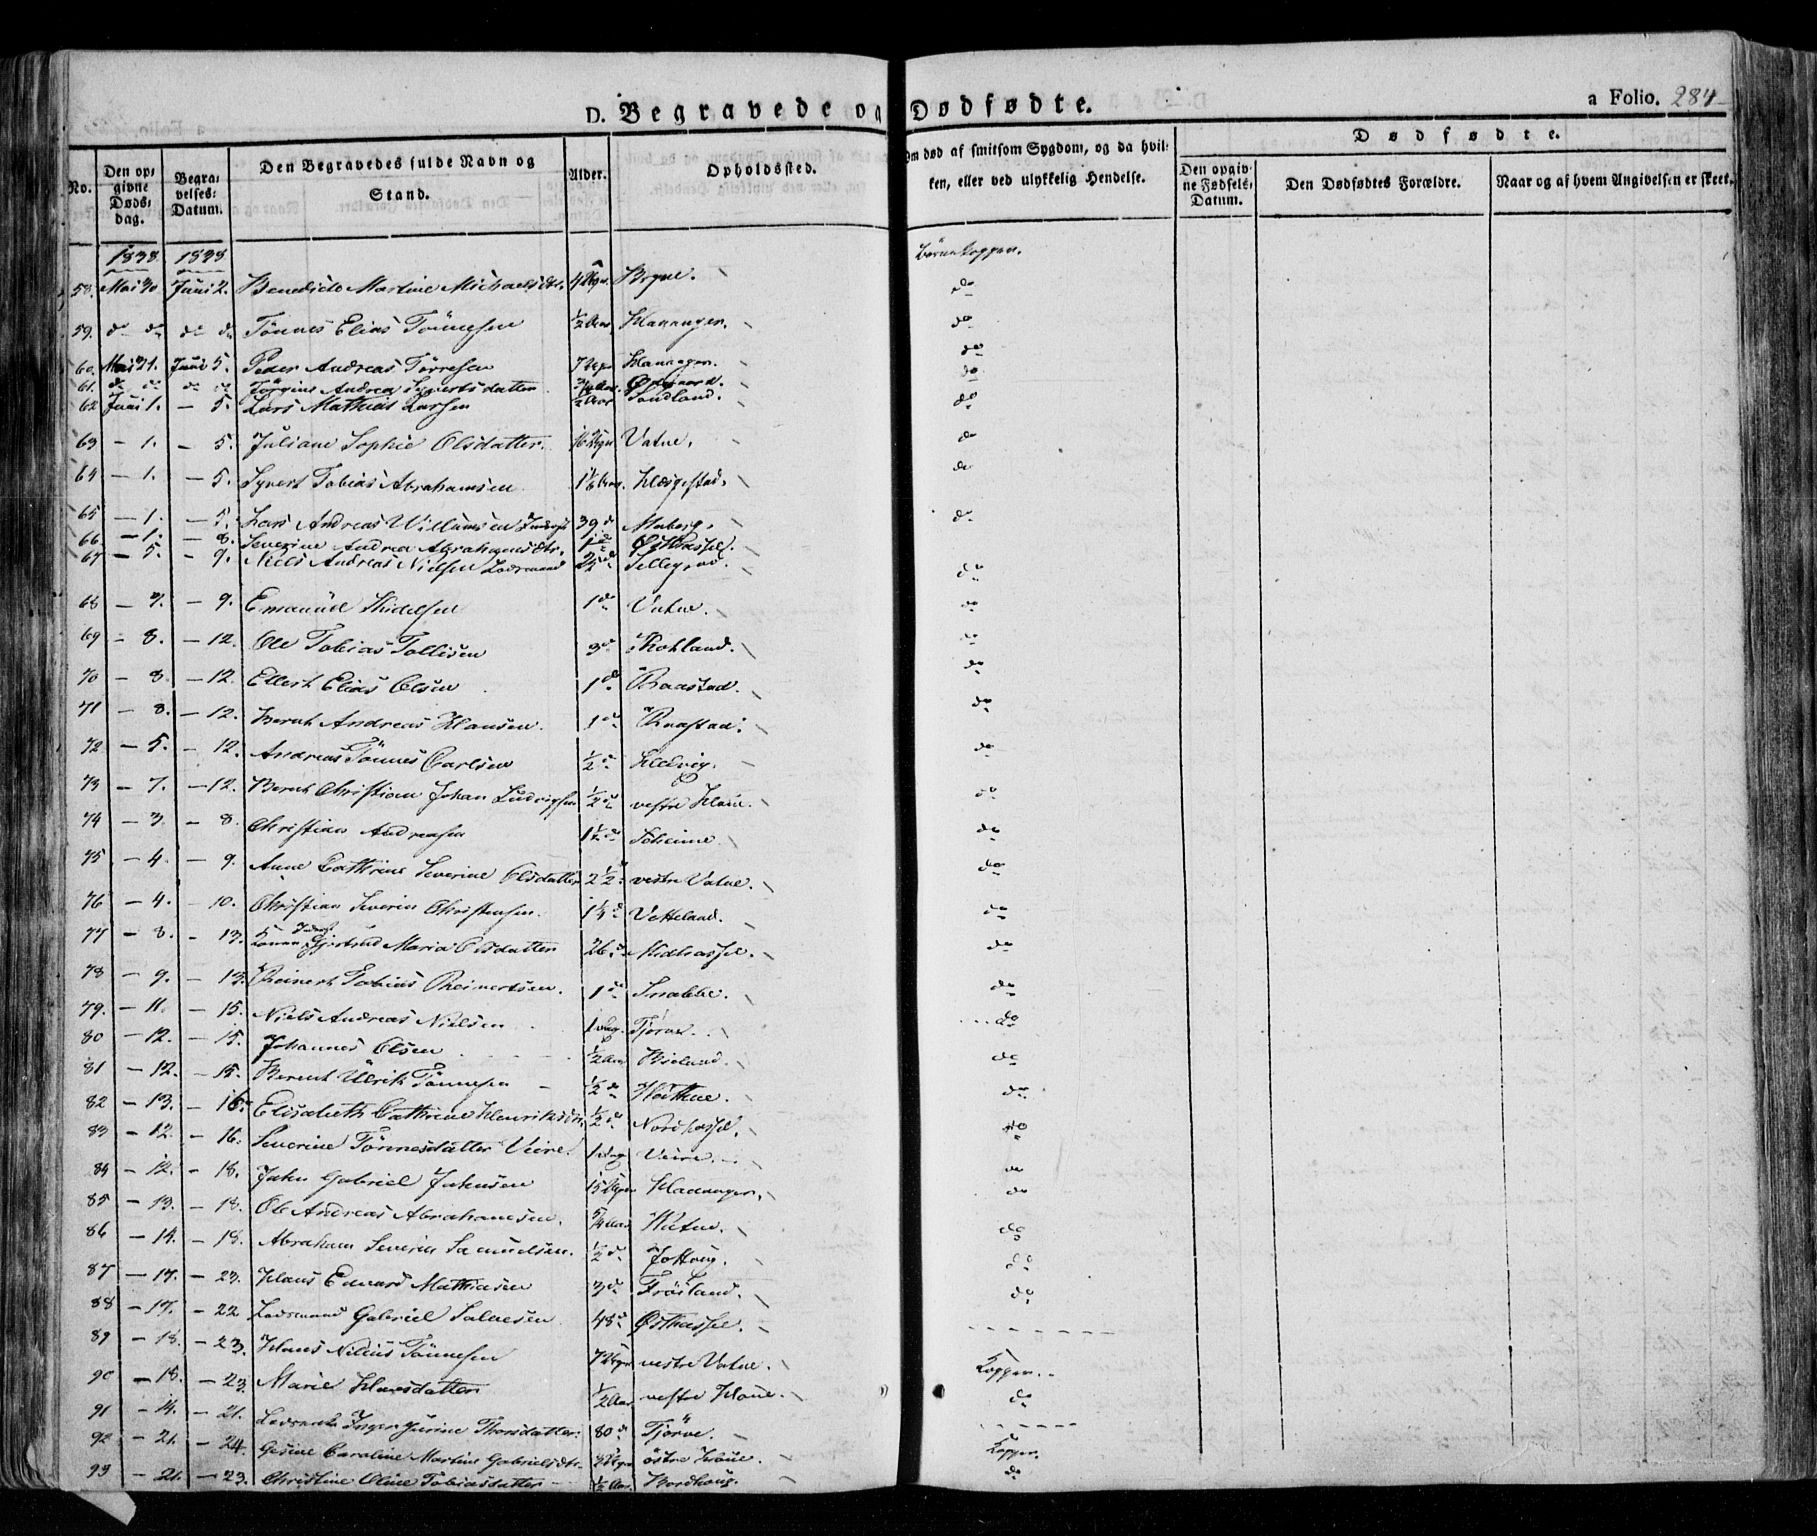 D. Begravede og Dødfødte.
a Folio. 284
No.
Den opgivne Dødsdag.
Begravelses-Datum.
Den Begravedes fulde Navn og Stand.
Alder.
Opholdssted.
Om død af smitsom Sygdom, og da hvilken, eller ved ulykkelig Hendelse.
Dødfødte.
Den opgivne Fødsels-Datum.
Den Dødfødtes Forældre.
Naar og af hvem Angivelsen er skeet.
1838. 1838 Börnekopper.
58. Mai 30 Juni 2. Benedicte Martine Michaelsdtr. 4 Uger. Brgne. do
59. do do do do Tönnes Elias Tönnesen 1/2 Aar Hananger. do
60. Mai 31. Juni 5. Peder Andreas Törresen 7 Uger Hananger. do
61. do do do do Andrea Syvertsdatter 3/4 Aar. do
62 Juni 1. - 5. Lars Mathias Larsen 1/2 Aar Sandland. do
63 - 1. - 5. Juliane Sophie Olsdatter. 16 Uger Vatne. do
64 - 1. - 5. Syvert Tobias Abrahamsen 1 1/6 Aar. Helgestad. do
65 - 1. - 5. Lars Andreas Willumsen 39 do Maberg. do
66 - 1. - 8. Severine Andrea Abrahamsdtr. 1 do Østhassel.
67 - 5. - 9. Niels Andreas Nielsen Lodsmand 25 do Sellegrod. do
68 - 7. - 9. Emanuel Mikelsen 1 do Vatne. do
69 - 8. - 12. Ole Tobias Tollisen 3 do Skohland. do
70 - 8. - 12. Ellert Elias Olsen 1 do Baastad. do
71 - 8. - 12. Bernt Andreas Hansen. 1 do Raastad. do
72 - 5. - 12. Andreas Tönnes Carlsen 1/2 do Hellvig. do
73 - 7. - 12. Bernt Christian Johan Ludvigsen 1/2 do vestre Haue. do
74 - 3. - 8. Christian Andreasen 1 1/2 do do
75 - 4. - 9. Anne Cathrine Severine Olsdatter 2 1/2 do vestre Vatne. do
76 - 4. - 10. Christian Severin Christensen. 1 1/4 do Vetteland. do
77 - 8. - 13. Gjertrud Maria Olsdatter 26 do Midhassel. do
78 - 9. - 13. Reinert Tobias Reinertsen. 1 do Snabbe. do
79. - 11. - 15. Niels Andreas Nielsen 1 Dag. Tjörve. do
80 - 12. - 15. Johannes Olsen 1/2 Aar Bieland. do
81 - 12. - 15. Berent Ulrik Tönnesen 1/2 do do
82 - 13. - 16. Elisabeth Cathrine Henriksdtr. 1/2 do Nordhassel. do
83 - 12. - 16. Severine Tönnesdatter Veire. 1 Dag Veire. do
84 - 12. - 18. John Gabriel Johnsen 15 Uger Hananger. do
85 - 13. - 18. Ole Andreas Abrahamsen. 5/4 Aar do
86 - 14. - 18. Abraham Severin Samuelsen. 1/2 do Jottveig. do
87 - 17. - 23. Hans Edvard Mathiasen 3 do Fröstland. do
88 - 17. - 22 Lodsmand Gabriel Salvesen 48 do Østhassel.
89 - 18. - 23. Hans Nilius Tönnesen 7 Uger vestre Vatne. Kopper.
90 - 18. - 23. Marie Hansdatter 1/2 Aar vestre Haue. do
91 - 14. - 21. Inger Jurine Thorsdatter. 80 do Tjörve.
92 - 21. - 24. Gesine Caroline Martine Gabrielsdtr. Uger östre Haue. Kopper.
93 - 21. - 23. Christine Oline Tobiasdatter 1/2 Aar. Bordhaug. do